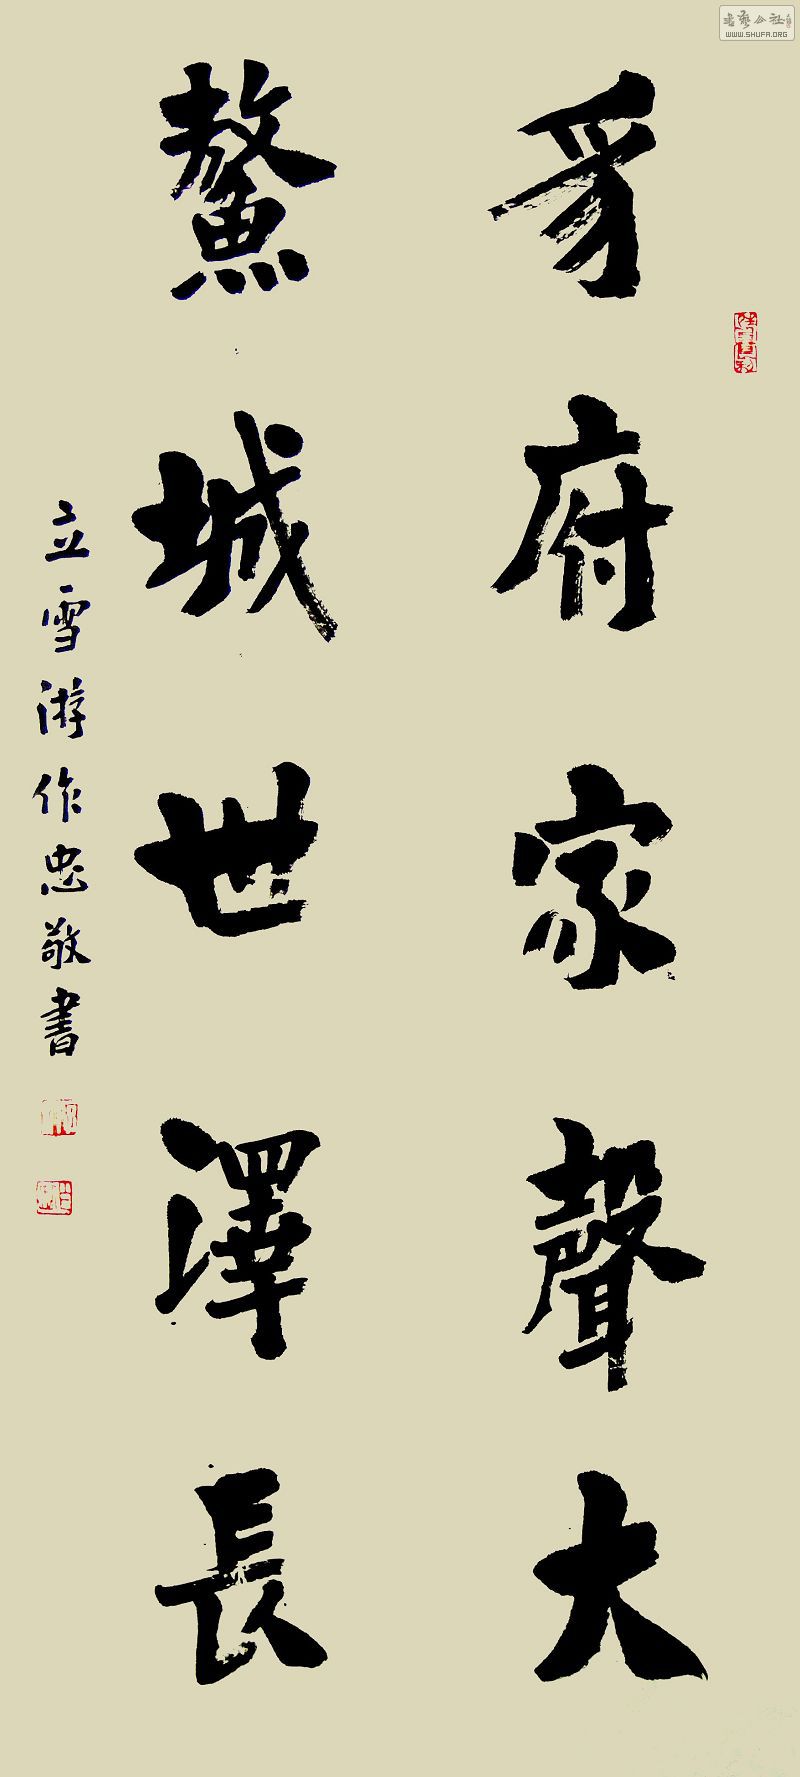 豸府家聲大
鰲城世澤長
立雪游作忠敬書
書藝公社
WWW.SHUFA.ORG